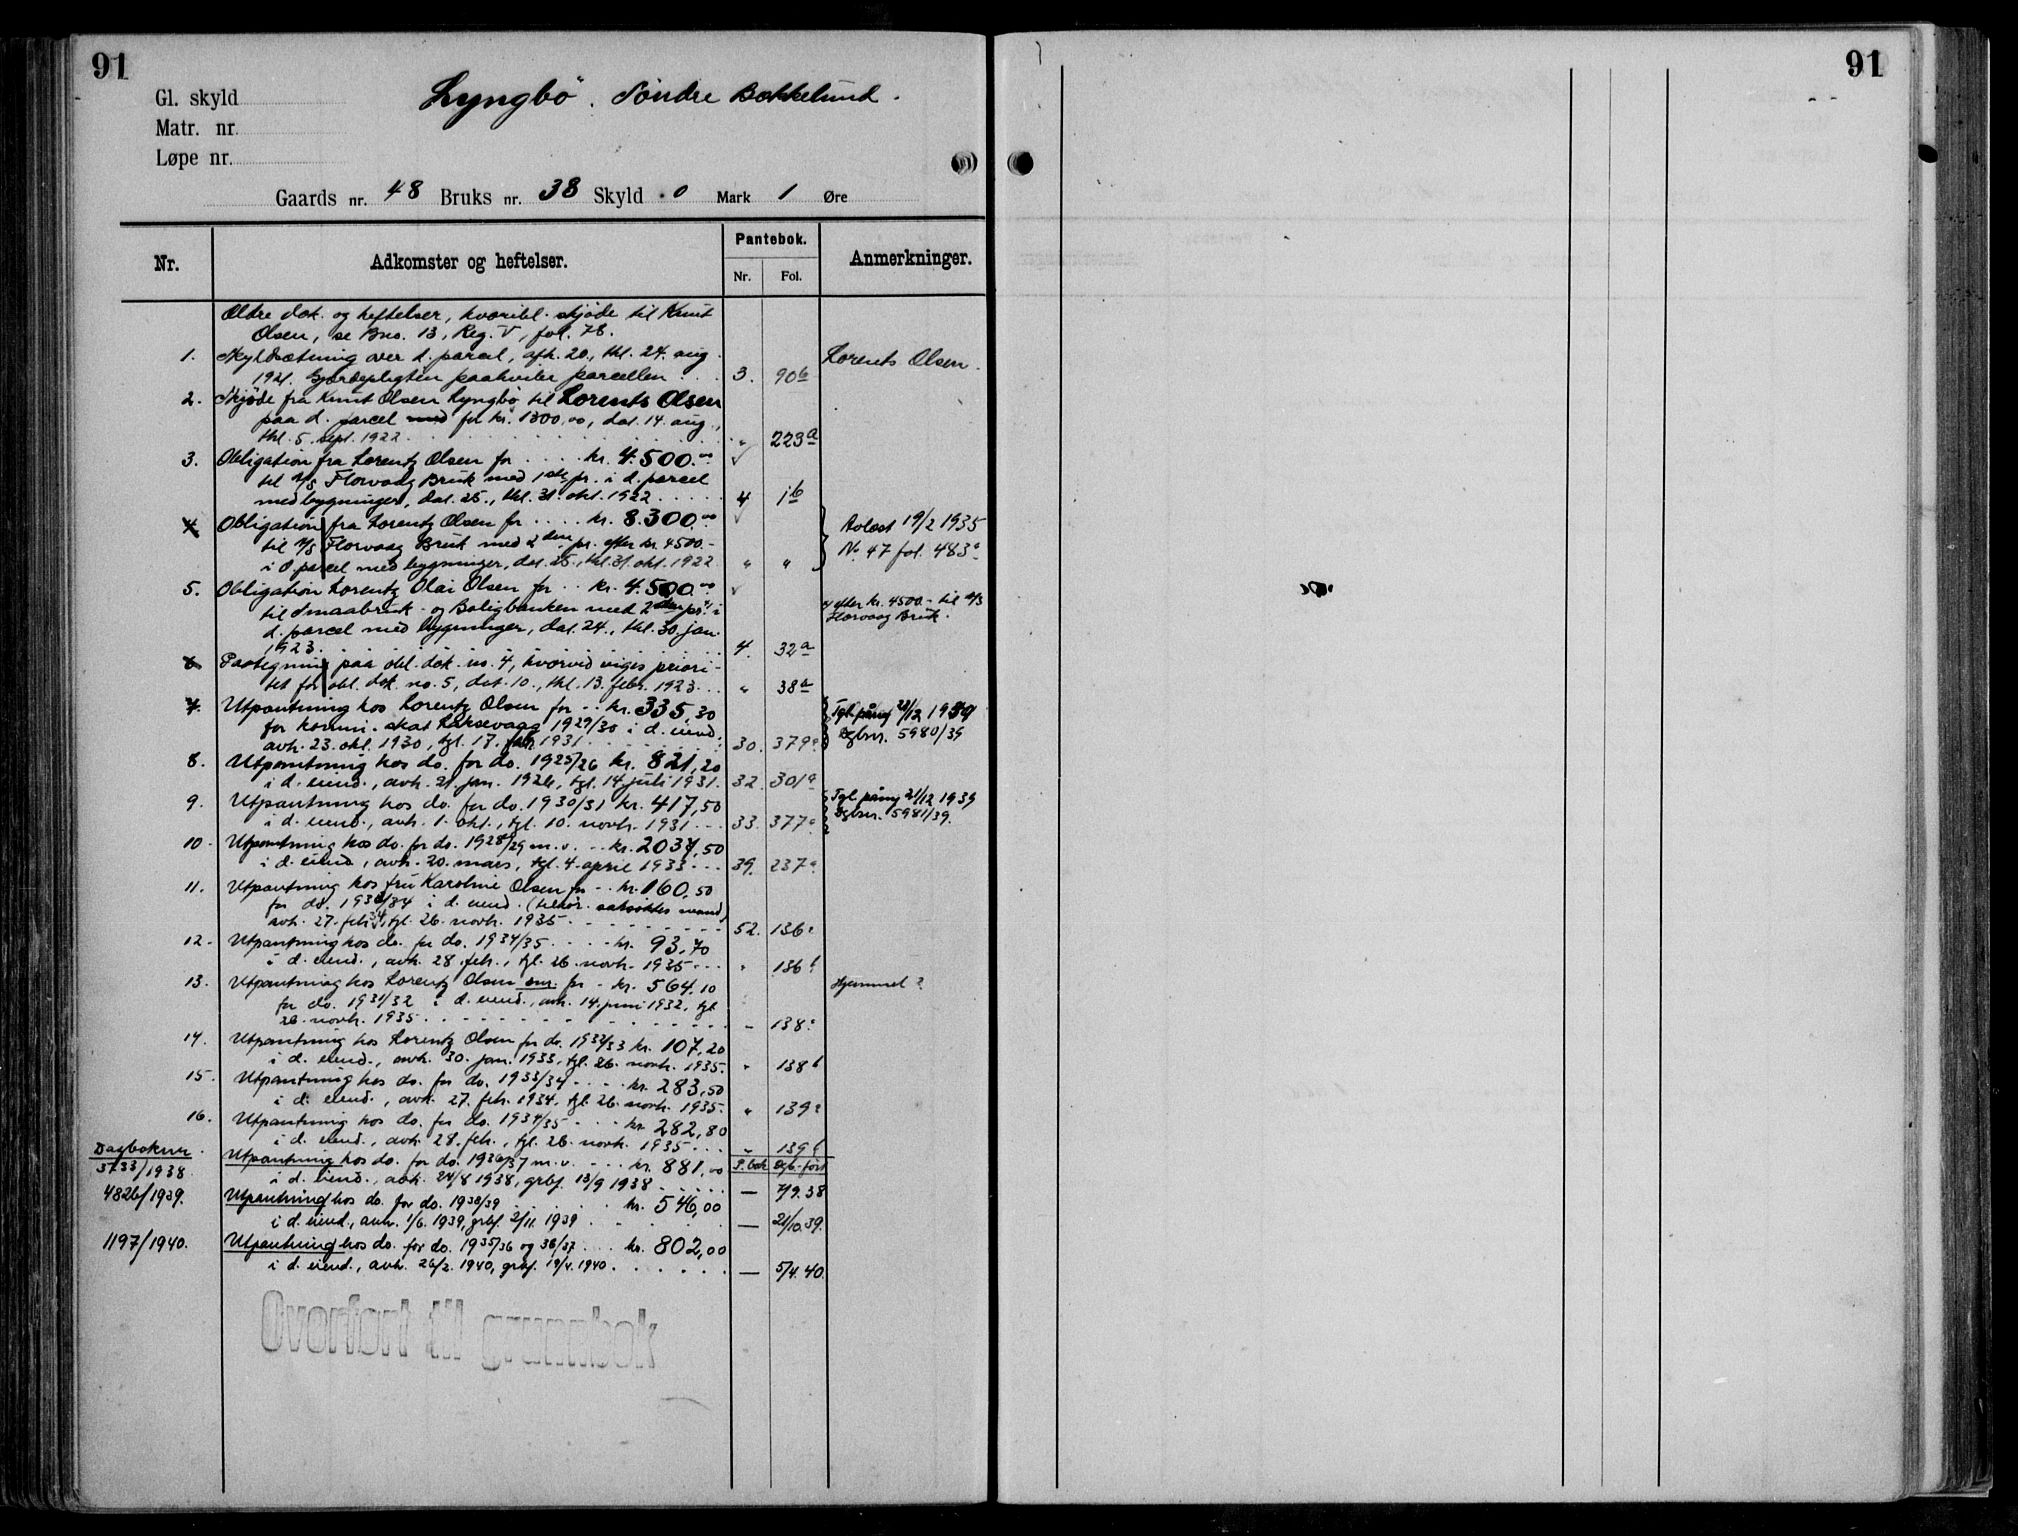 91
91
Gl. skyld
Lyngbö. Söndre Bakkelund.
Matr. nr.
Løpe nr.
Gaards nr. 48 Bruks nr. 38 Skyld 0 Mark 1 Øre
Nr. Adkomster og heftelser. Pantebok. Anmerkninger.
Nr. Fol.
Ældre dok. og heftelser, hvoribl. skjöde til Knut
Olsen, se Bns. 13, Reg. V, fol. 78.
1. Skyldsætning over d. parcel, afh. 20., thl. 24. aug. Lorents Olsen.
1921. Gjærdepligten paahviler parcellen . . . 3. 90b
2. Skjöde fra Knut Olsen Lyngbö til Lorents Olsen
paa d. parcel med for kr. 1300.00, dat. 14. aug.,
thl. 5. sept. 1922 . . . " 223a
3. Obligation fra Lorentz Olsen for . . . . kr. 4.500.00
til A/S Florvaag Bruk med 1ste pr. i d. parcel
med bygninger, dat. 25., thl. 31. okt. 1922 . . . . 4 1b
4. Obligation fra Lorentz Olsen for . . . . kr. 8.300.00 Avlæst 19/2 1935
til A/S Florvaag Bruk med 2den pr. efter kr. 4500.- No. 47 fol. 483a
i d. parcel med bygninger, dat. 25., thl. 31. okt. 1922 " "
5. Obligation Lorentz Olai Olsen for . . kr. 4.500.00
til Smaabruk- og Boligbanken med 2den pr. x/ i x/ efter kr. 4500.- til A/S
d. parcel med bygninger, dat. 24., thl. 30. jan. Florvaag Bruk.
1923. . . . 4. 32a
6. Paategning paa obl. dok. no. 4, hvorved viges priori-
tet for obl. dok. no. 5, dat. 10., thl. 13. febr. 1923. . . " 38a
7. Utpantning hos Lorentz Olsen for . . kr. 335,30 Tgl. påny 21/12 1939
for komm. skat Laksevaag 1929/30 i d. eiend. Dgbnr. 5980/39
avh. 23. okt. 1930, tgl. 17. febr. 1931 . . . 30. 379a
8. Utpantning hos do. for do. 1925/26 kr. 821,20
i d. eiend., avh. 21. jan. 1926, tgl. 14 juli 1931. 32. 301a
9. Utpantning hos do. for do. 1930/31 kr. 417,50 Tgl. påny 21/12 1939
i d. eiend., avh. 1. okt., tgl. 10. novb. 1931 . . . 33. 377a Dgbnr. 5981/39.
10. Utpantning hos do. for do. 1928/29 m.v. . . kr. 2037,50
i d. eiend., avh. 20. mars, tgl. 4. april 1933 . . . 39. 237a
11. Utpantning hos fru Karoline Olsen for . . kr. 160,50
for do. 1933/34 i d. eiend. (tilhör. saksöktes mand)
avh. 27. feb. 34, tgl. 26. novb. 1935 . . . 52. 136a
12. Utpantning hos do. for do. 1934/35 . . . . kr. 93,70
i d. eiend., avh. 28. feb., tgl. 26. novb. 1935 . . . " 136b
13. Utpantning hos Lorentz Olsen snr. for . kr. 564,10 Hjemmel?
for do. 1931/32 i d. eiend., avh. 14. juni 1932, tgl.
26. novb. 1935 . . . " 138a
14. Utpantning hos Lorentz Olsen for do. 1932/33 kr. 107,20
i d. eiend., avh. 30. jan. 1933, tgl. 26. novb. 1935. " 138b
15. Utpantning hos do. for do. 1933/34 . . . . kr. 283,50
i d. eiend., avh. 27. feb. 1934, tgl. 26. novb. 1935. " 139a
16. Utpantning hos do. for do. 1934/35 . . . kr. 282,80
i d. eiend., avh. 28. feb., tgl. 26. novb. 1935 . . . " 139b
Dagboknr.
3733/1938. Utpantning hos do. for do. 1936/37 m.v. . . . kr. 881,00 P.bok Dgb. ført
i d. eiend., avh. 24/8 1938, grbf. 13/9 1938 . . . . . — 7/9.38
4826/1939. Utpantning hos do. for do. 1938/39 . . . kr. 546,00
i d. eiend., avh. 1/6. 1939, grbf. 2/11. 1939 . . . — 21/10.39.
1197/1940. Utpantning hos do. for do. 1935/36 og 36/37 . . . kr. 802,00
i d. eiend., avh. 26/2. 1940, grbf. 19/4. 1940 . . . — 5/4.40.
Overført til grunnbok